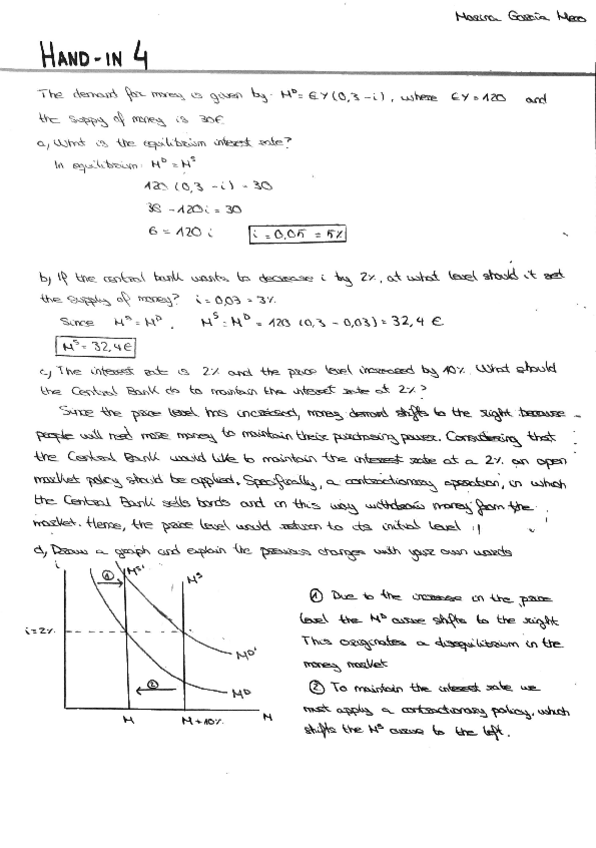 Marina García
HAND-IN 4
The demand for money is given by: Mᴰ = €Y (0,3 - i), where €Y = 120 and
the supply of money is 30€
a, What is the equilibrium interest rate?
In equilibrium: Mᴰ = Mˢ
120 (0,3 - i) = 30
36 - 120 i = 30
6 = 120 i    i = 0,05 = 5%
b, If the central bank wants to decrease i by 2%, at what level should it set
the supply of money? i = 0,03 = 3%
Since Mˢ = Mᴰ, Mˢ = Mᴰ = 120 (0,3 - 0,03) = 32,4 €
Mˢ = 32,4€
c, The interest rate is 2% and the price level increased by 10%. What should
the Central Bank do to maintain the interest rate at 2%?
Since the price level has increased, money demand shifts to the right because
people will need more money to maintain their purchasing power. Considering that
the Central Bank would like to maintain the interest rate at a 2% an open
market policy should be applied. Specifically, a contractionary operation, in which
the Central Bank sells bonds and in this way withdraws money from the
market. Hence, the price level would return to its initial level
d, Draw a graph and explain the previous changes with your own words
i
①
Mˢ'
Mˢ
i = 2%
Mᴰ'
②
Mᴰ
M
M + 10%
M
① Due to the increase in the price
level the Mᴰ curve shifts to the right
This originates a disequilibrium in the
money market
② To maintain the interest rate we
must apply a contractionary policy, which
shifts the Mˢ curve to the left.